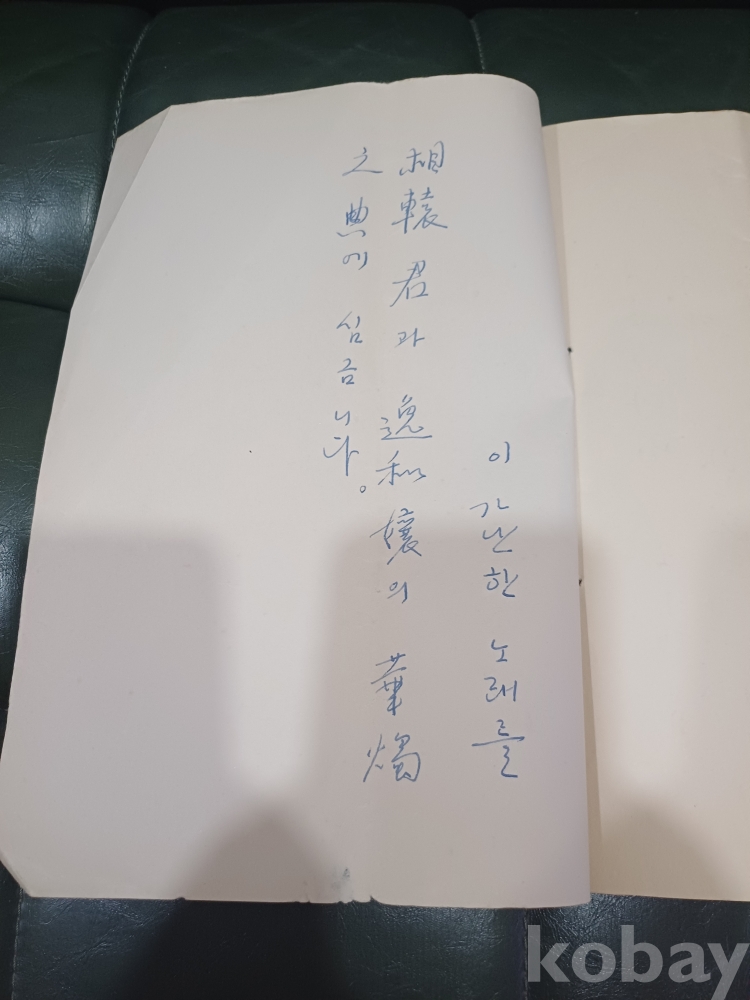 이 가난한 노래를
相轅君과 逸和孃의 華燭
之典에 심금니다。
kobay